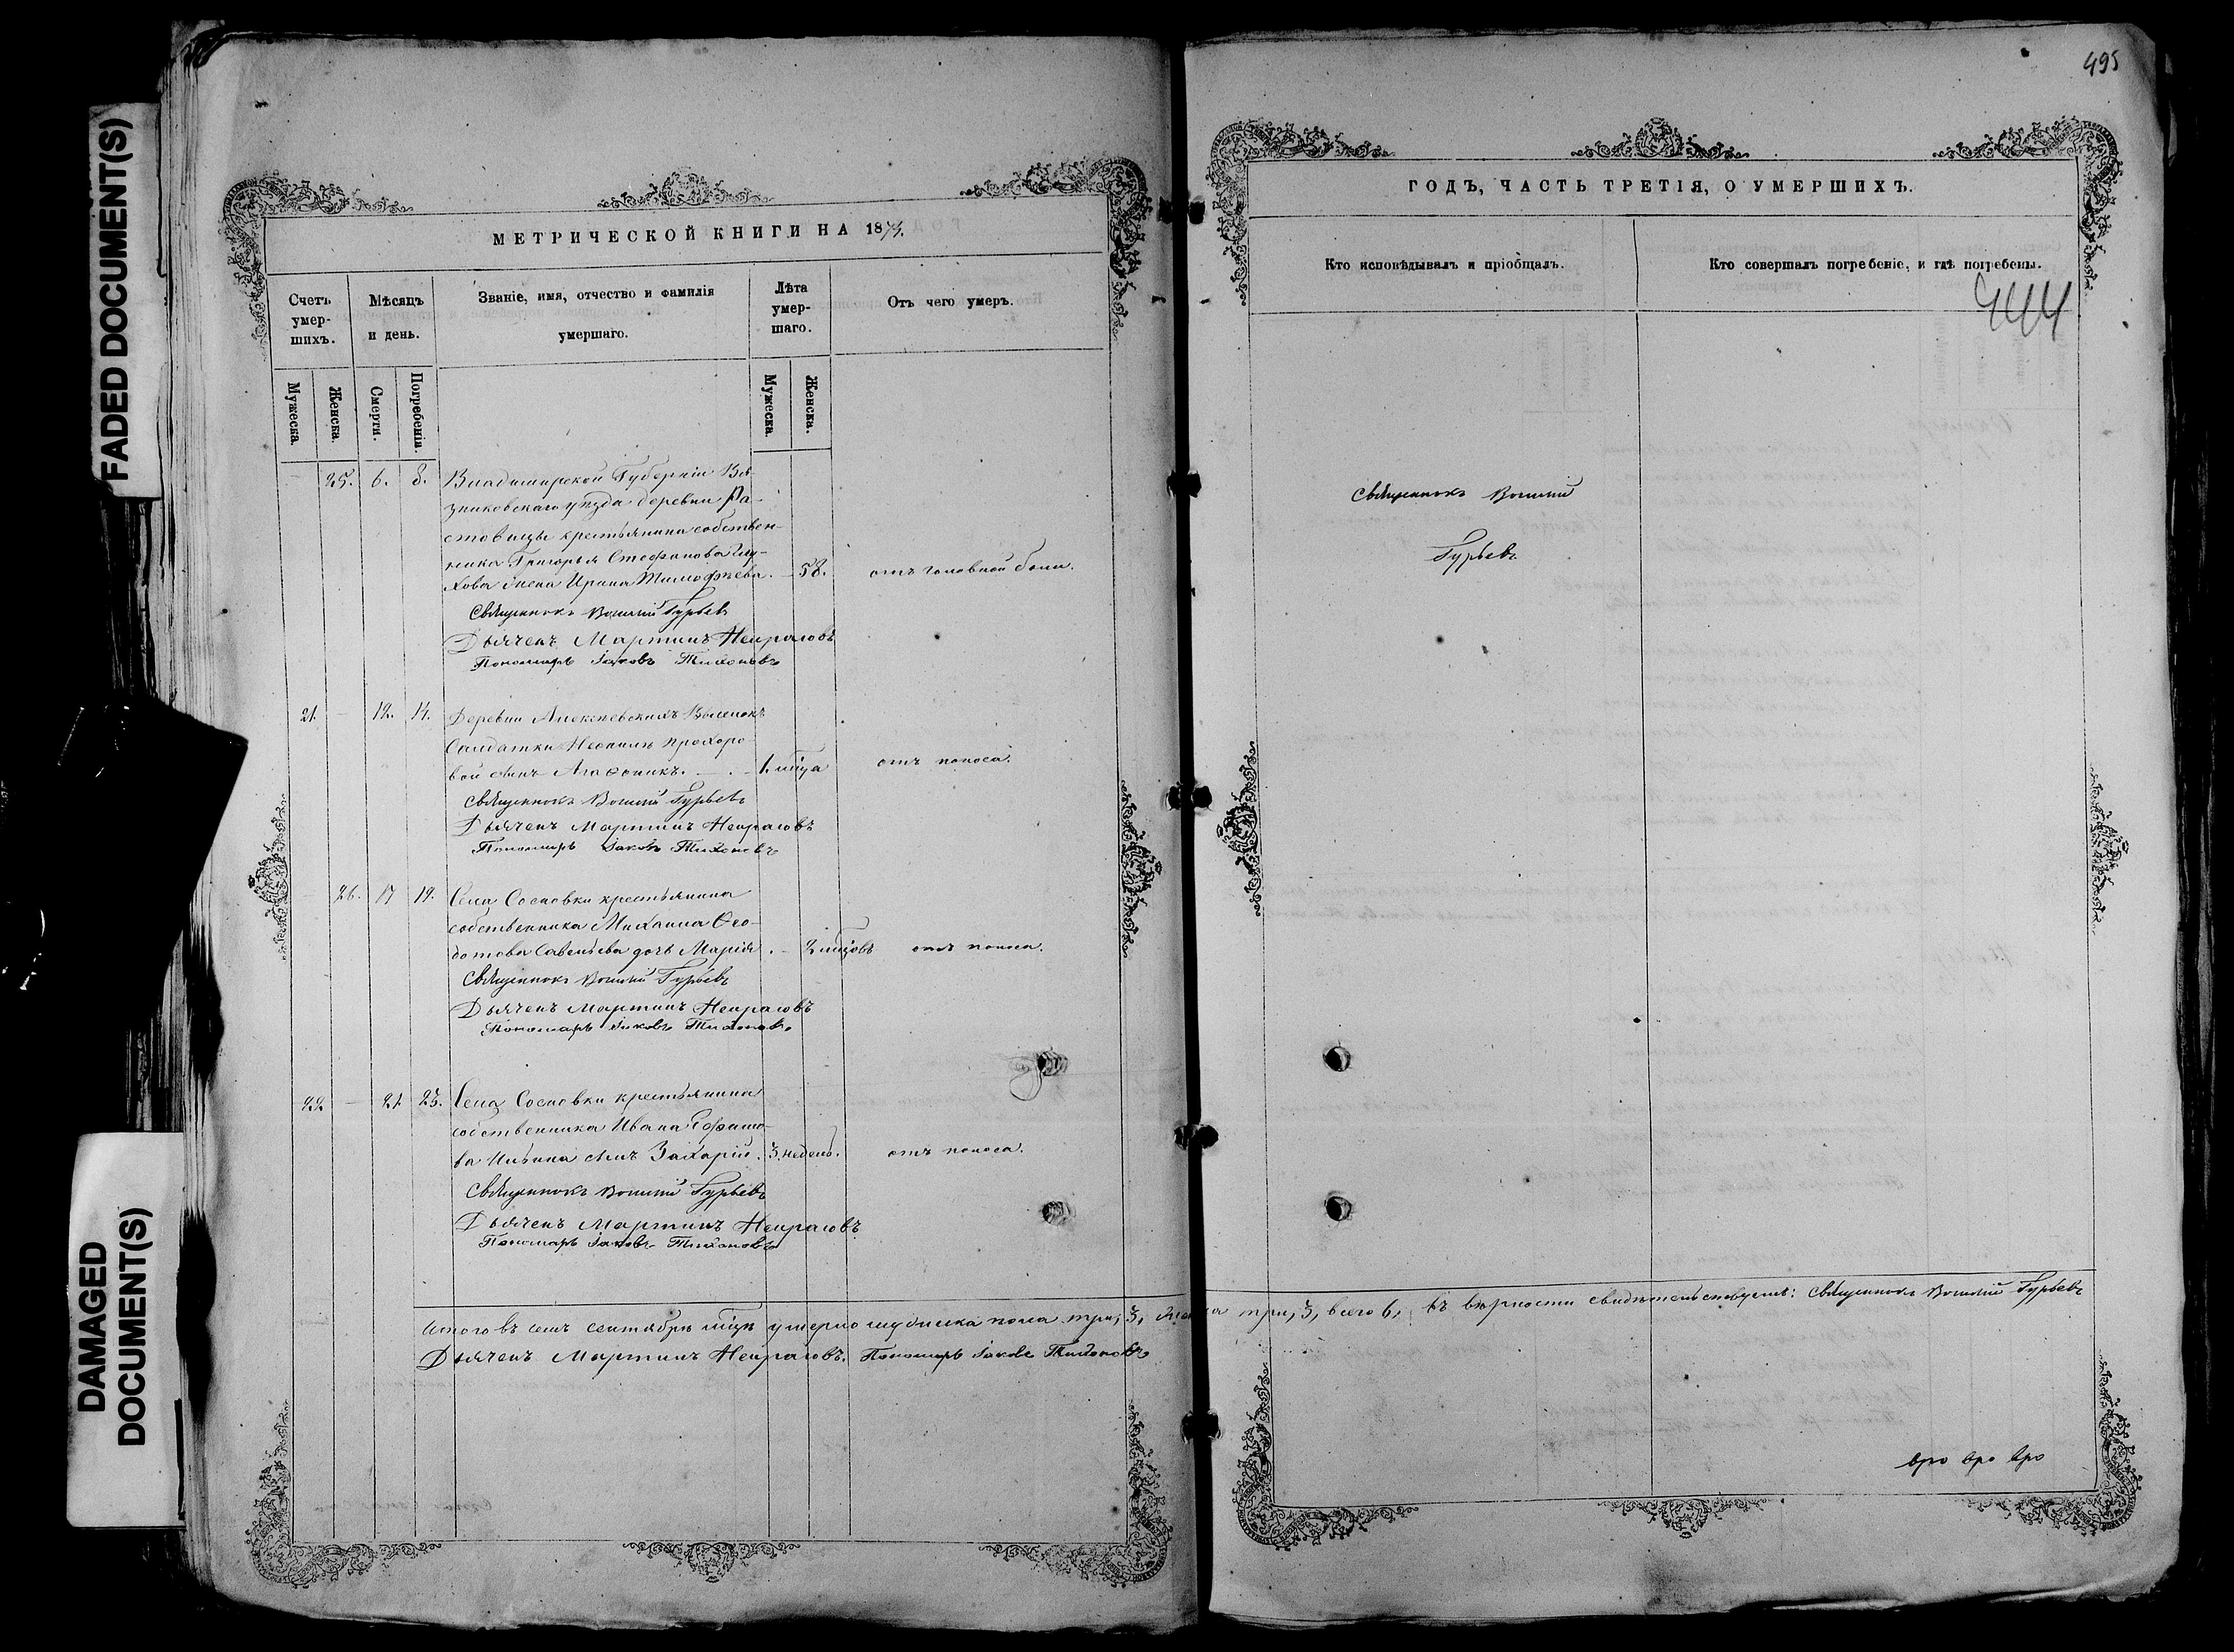 FADED DOCUMENT(S)
DAMAGED
DOCUMENT(S)
МЕТРИЧЕСКОЙ КНИГИ НА 1873.
Счетъ
умер-
шихъ.
Мѣсяцъ
и день.
Званіе, имя, отчество и фамилія
умершаго.
Лѣта
умер-
шаго.
Отъ чего умеръ.
Мужеска.
Женска.
Смерти.
Погребенія.
Мужеска.
Женска.
25. 6. 8. Владимирской Губерніи Вя-
зниковскаго уѣзда деревни Ра-
стовицы крестьянина собствен-
ника Григорья Стефанова Глу-
хова жена Ирина Тимофѣева. 58. отъ головной боли.
Священникъ Василій Гурьевъ
Дьячекъ Мартинъ Некрасовъ
Пономарь Іаковъ Тихоновъ
21. 12. 14. Деревни Алексѣевскихъ Выселокъ
Салдатки Неонилы Прохоро-
вой сынъ Агафоникъ. 1. мѣца отъ поноса.
Священникъ Василій Гурьевъ
Дьячекъ Мартинъ Некрасовъ
Пономарь Іаковъ Тихоновъ
26. 17 19. Села Сосновки крестьянина
собственника Михаила Ѳео-
дотова Савельева дочь Марія. 2 мѣцовъ отъ поноса.
Священникъ Василій Гурьевъ
Дьячекъ Мартинъ Некрасовъ
Пономарь Іаковъ Тихоновъ
22 21 23. Села Сосновки крестьянина
собственника Ивана Ефимо-
ва Ильина сынъ Захарій. 3. недель. отъ поноса.
Священникъ Василій Гурьевъ
Дьячекъ Мартинъ Некрасовъ
Пономарь Іаковъ Тихоновъ
Итого въ семъ сентябрѣ мѣцѣ умерло мужеска пола три, 3, три, 3, всего 6. Въ вѣрности свидѣтельствуемъ: Священникъ Василій Гурьевъ
Дьячекъ Мартинъ Некрасовъ. Пономарь Іаковъ Тихоновъ
495
ГОДЪ, ЧАСТЬ ТРЕТІЯ, О УМЕРШИХЪ.
Кто исповѣдывалъ и пріобщалъ.
Кто совершалъ погребеніе, и гдѣ погребены.
444
Священникъ Василій
Гурьевъ